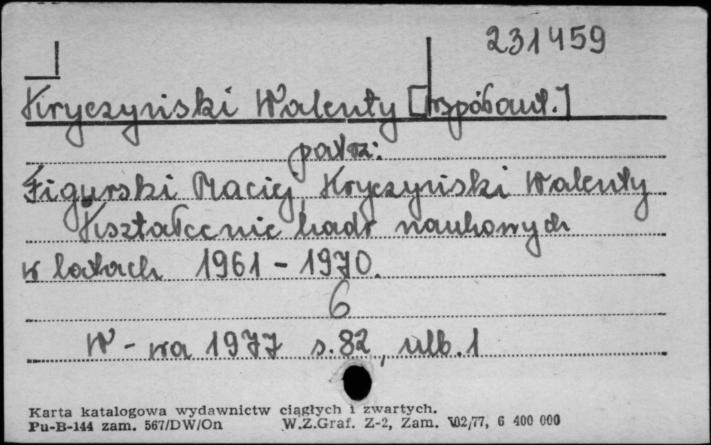 231459
Kryczyński Walenty [współaut.]
patrz:
Figurski Maciej, Kryczyński Walenty
Kształcenie kadr naukowych
w latach 1961-1970.
6
W-wa 1977 s.82, nlb.1
Karta katalogowa wydawnictw ciągłych i zwartych.
Pu-B-144 zam. 567/DW/On W.Z.Graf. Z-2, Zam. 102/77, 6 400 000